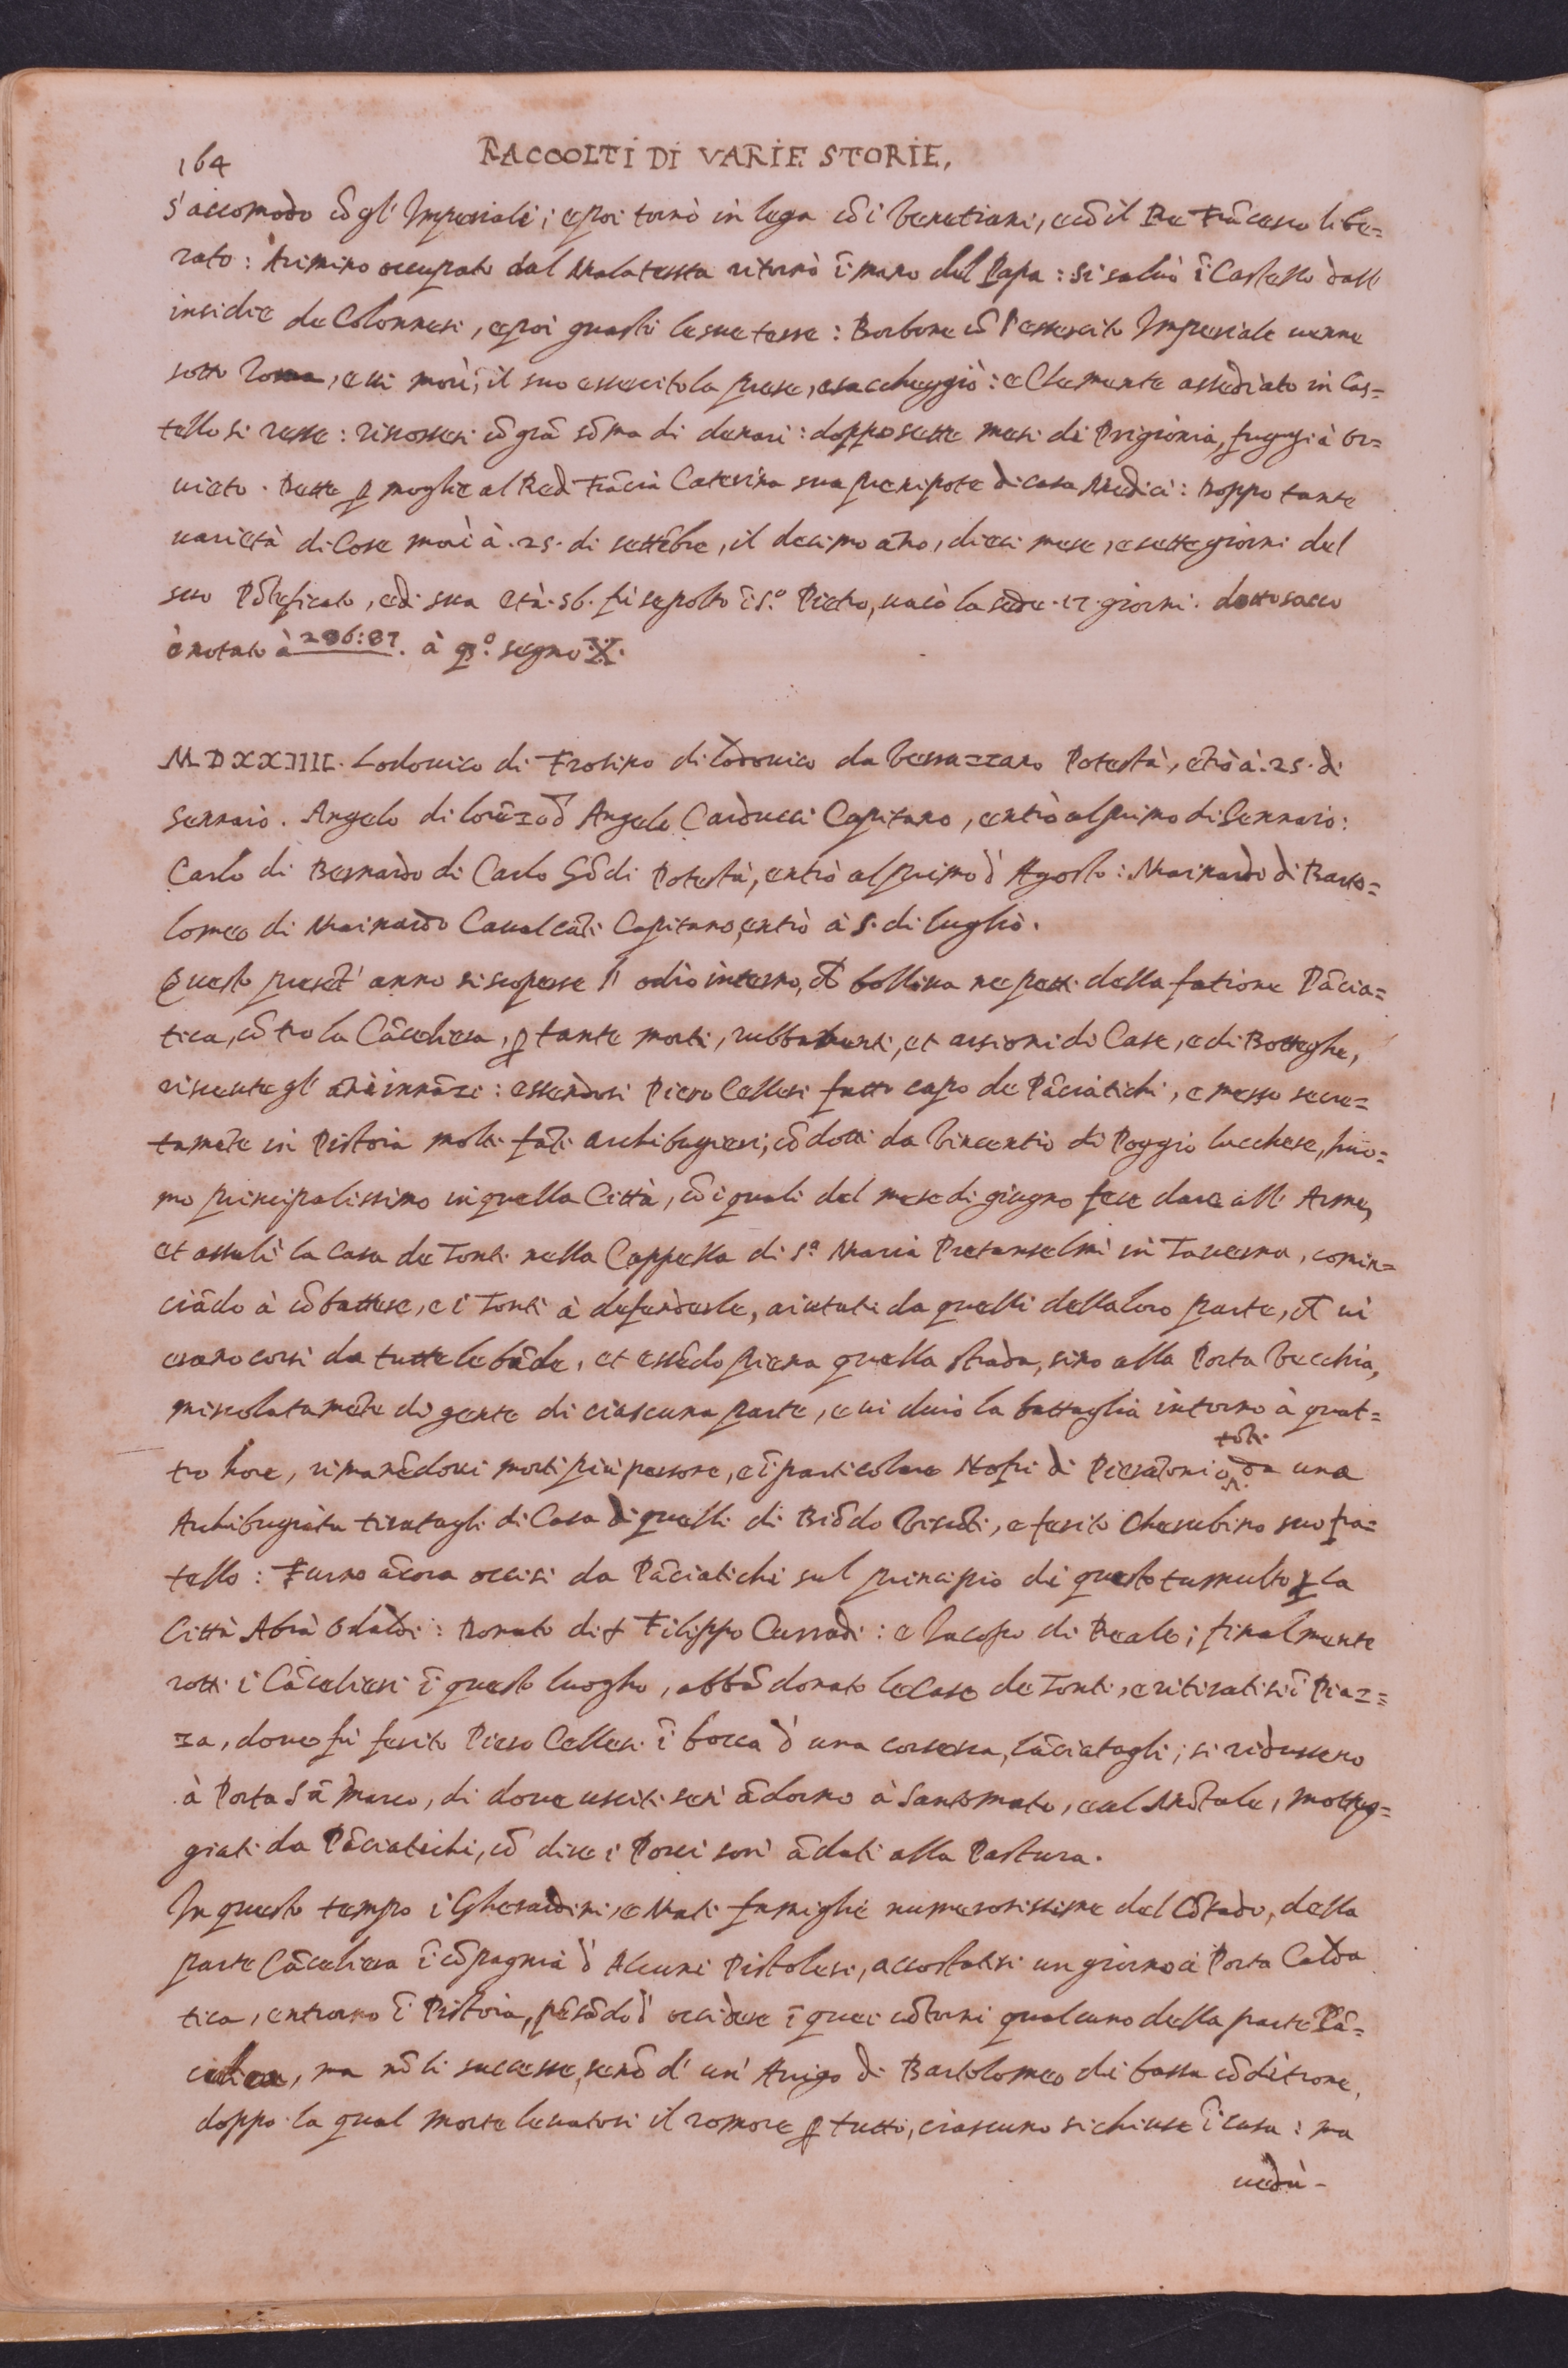 164
RACCOLTI DI VARIE STORIE,
s'accomodò cō gl' Imperiali; e poi tornò in lega cō i Venetiani, e cō il Re Frācesco libe=
rato: Arimino occupato dal Malatesta ritornò ī mano del Papa: si salvò ī Castello dall'
insidie de Colonnesi, e poi guastò le sue terre: Borbone cō l'essercito Imperiale venne
sotto Roma, e vi morì, il suo essercito la prese, e saccheggiò: e Clemente assediato in Cas=
tello si rese: riscossesi cō grā sōma di denari: doppo sette mesi di Prigionia, fuggì à Or=
vieto. Dette p moglie al Re di Frācia Caterina sua pronipote di casa Medici: Doppo tante
varietà di Cose morì à .25. di settēbre, il decimo āno, dieci mese, e sette giorni del
suo Pōteficato, e di sua età .56. fù sepolto ī S.º Pietro, vacò la sede .17. giorni. detto sacco
è notato à 286:87. à qº. segno .X.
MDXXIIII. Lodovico di Frosino di Lodovico da Verrazzano Potestà, ētrò à .25. di
Gennaio. Angelo di Lorēzo d' Angelo Carducci Capitano, entrò al primo di Gennaio:
Carlo di Bernardo di Carlo Gōdi Potestà, entrò al primo d' Agosto: Mainardo di Barto=
lomeo di Mainardo Cavalcāti Capitano, entrò à 5. di luglio.
Questo presēt' anno si scoperse l' odio interno, che bolliva ne petti della fatione Pācia=
tica, cōtro la Cācelliera, p tante morti, rubbamenti, et arsioni di Case, e di Botteghe,
ricevute gl' āni innāzi: essendosi Piero Cellesi fatto capo de Pāciatichi, e messo secre=
tamēte in Pistoia molti fāti archibugieri, cōdotti da Vincentio di Poggio lucchese, huo=
mo principalissimo in quella Città, cō i quali del mese di giugno fece dare all' Arme,
et assalì la casa de Tonti nella Cappella di S.ª Maria Pretanselmi in Taverna, comin=
ciādo à cōbattere, e i Tonti à defenderle, aiutati da quelli della loro parte, che vi
erano corsi da tutte le bāde, et essēdo piena quella strada, sino alla Porta Vecchia,
miscolatamēte di gente di ciascuna parte, e vi durò la battaglia intorno à quat=
tro hore, rimanēdovi morti più persone, e ī particolare Nofri di Pierātonio tōti da una
Archibugiata tiratagli di Casa di quelli di Biōdo Viscōti, e ferito Cherubino suo fra=
tello: Furno ācora occisi da Pāciatichi sul principio di questo tumulto p la
Città Abrā Odaldi: Donato di Filippo Curradi: e Iacopo di Reale; finalmente
rotti i Cācellieri ī questo luogho, abbādonato le Case de Tonti, e ritiratisi ī Piaz=
za, dove fù ferito Piero Cellesi ī bocca d' una corsesca, lāciatagli; si ridussero
à Porta Sā Marco, di dove usciti seni ādorno à Santomato, e al Mōtale, motteg=
giati da Pāciatichi, cō dire i Porci son' ādati alla Pastura.
In questo tempo i Gherardini, e Mati famiglie numerosissime del Cōtado, della
parte Cācelliera ī cōpagnia d' Alcuni Pistolesi, accostatisi un giorno à Porta Calda
tica, entrorno ī Pistoia, pēsādo d' occidere ī quei cōtorni qualcuno della parte Pā=
, ma nō li successe, senō d' un' Arrigo di Bartolomeo di bassa cōditione,
doppo la qual morte levatosi il romore p tutto, ciascuno si chiuse ī casa: ma
vedu-